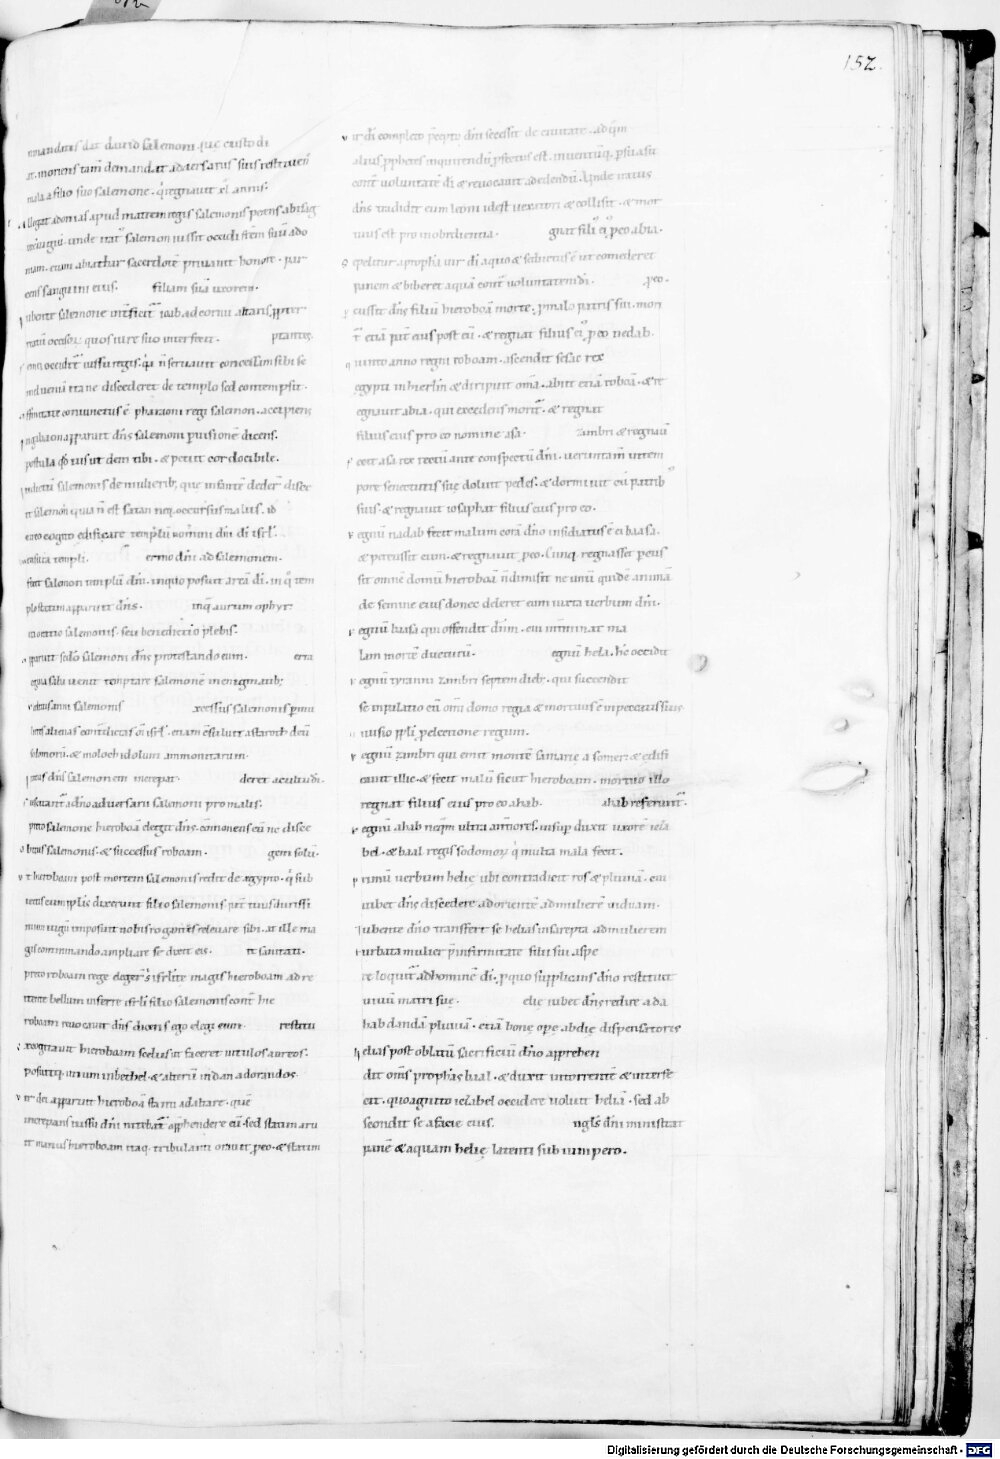 152.
mandatis dat david salemoni que custodi
at. moriens tam̄ demandat adversarūs suis restitueri
mala a filio suo salemone. q̇ regnavit xl annis.
llegat adonias apud matrem regis salemonis petens abisag
unde irat᾽ salemon iussit occidi frēm suū ado
niam. etiam abiathar sacerdotē privavit honore. par
cens sanguini eius. filiam suā uxorem.
ubente salemone int̄ficit᷑ ioab ad cornu altaris ꝓpter
quos iure suo interfecit. ptantes.
occidit᷑ iussu regis. q̇ n̄ servavit
induenia ita ne discederet de templo sed contempsit.
ffinitate coniunctus ē pharaoni regi salemon. accipiens
n gabaon apparuit dn̄s salemoni ꝑ visionē dicens.
postula qd̄ vis ut dem tibi. & petiit cor docibile.
udiciū salemonis de mulierib; que infantē dedert᷑ disce
it salemon quia n̄ est satan neq; occursus malus. id
circo cogito edificare templū nomini dn̄i di isrl.
ensura templi. ermo dn̄i ad salemonem.
fecit salemon templū dn̄i. in quo posuit arcā di. in q̊ tem
plo etiam apparuit dn̄s. inq̊ aurum ophyr.
oratio salemonis. seu benedictio plebis.
pparuit scd̄o salemoni dn̄s protestando eum. erra
egina saba venit temptare salemonē in enigmatib;
salemonis xcessus salemonis ꝑ mu
lieres alienas contdictas
sidoniorū. & moloch idolum ammonitarum.
pens dn̄s salemonem increpat. deret a cultu di.
uscitant᷑ a dn̄o adversarii salemoni pro malis.
preto salemone hieroboā elegit dn̄s. com̄onens eū ne disce
bitus salemonis. & successus roboam. gem solū.
t hieroboam post mortem salemonis redit de ægypto. q̇ sub
iectis cum pplis dixerunt filio salemonis. pat᷑ tuus durissi
mum iugū imposuit nobis rogantes relevare sibi. at ille ma
gis comminando ampliare se dixit eis. it sanitati.
preto roboam rege elegert᷑ isrlite magis hieroboam ad re
tente bellum inferre isrli filio salemonis cont᷑ hie
roboam revocavit dn̄s dicens ego elegi eum. restitu
xcogitavit hieroboam scelus ut faceret vitulos aureos.
posuitq; unum in bethel. & alterū in dan adorandos.
ir dei apparuit hieroboā stanti ad altare. quē
increpans iussu dn̄i nitebat᷑ app̄hendere eū. sed statim aru
it manus hieroboam itaq; tribulanti oravit ꝑ eo. & statim
ir di completo p̄cepto dn̄i secessit de civitate. ad quē
alius ꝓphetes inquirendū ꝓfectus est. inventūq; ꝑsuasit
cont᷑ voluntatē di & revocavit ad edendū. Unde iratus
dn̄s tradidit eum leoni id est vexatori & collisit. & mor
tuus est pro inobedientia. gnat fili᾽ ei᾽ ꝓ eo abia.
epelitur a propha vir di a quo & seductus ē ut comederet
panem & biberet aquā cont᷑ voluntatem di. ꝓ eo.
cussit dn̄s filiū hieroboā morte. ꝓ malo patris sui. mori
t᷑ etiā pat᷑ eius post eū. & regnat filius ei᾽ ꝓ eo nadab.
uinto anno regni roboam. ascendit sesac rex
egypti in hierlm̄ & diripuit om̄a. abiit etiā roboā. & re
gnavit abia. qui excedens morit᷑. & regnat
filius eius pro eo nomine asa. zambri & regnavit
ecit asa rex rectū ante conspectū dn̄i. veruntam̄ in tem
pore senectutis sue doluit pedes. & dormivit cū patrib᾽
suis. & regnavit iosaphat filius eius pro eo.
egnū nadab fecit malum corā dn̄o insidiatus ē ei baasa.
& percussit eum. & regnavit ꝓ eo. Cūnq; regnasset percus
sit omnē domū hieroboā n̄ dimisit ne unū quidē animā
de semine eius donec deleret eam iuxta verbum dn̄i.
egnū baasa qui offendit dn̄m. cui minat᷑ ma
lam mortē ducturū. egnū hela. hic occidit
egnū tyranni zambri septem dieb;. qui succendit
se in palatio cū omi domo regia & mortuus ē in peccatis suis
ivisio ppli ꝑ electione regum.
egnū zambri qui emit montē samarie a somer. & edifi
cavit illic. & fecit malū sicut hieroboam. mortuo illo
regnat filius eius pro eo ahab. ahab referunt᷑.
egnū ahab neqm̄ ultra anteriores. insup duxit uxorē ieza
bel. & baal regis sodomor̄ q̇ multa mala fecit.
rimū verbum helię ubi contradicit ros & pluviā. cui
iubet dn̄s discedere ad orientē ad mulierē viduam.
ubente dn̄o transfert se helias in sarepta ad mulierem
urbata mulier ꝓ infirmitate filii sui aspe
re loquit᷑ ad hominē di. ꝓ quo supplicans dn̄o restituit
vivū matri sue. elię iubet dn̄s redire ad a
hab dandā pluviā. etiā bone ope abdię dispensatoris
elias post oblatū sacrificiū dn̄o apprehen
dit om̄s prophas baal. & duxit in torrentē & interfe
cit. quo agnito iezabel occidere voluit heliā. sed ab
scondit se a facie eius. ngls dn̄i ministrat
panē & aquam helię latenti sub iunipero.
Digitalisierung gefördert durch die Deutsche Forschungsgemeinschaft - DFG